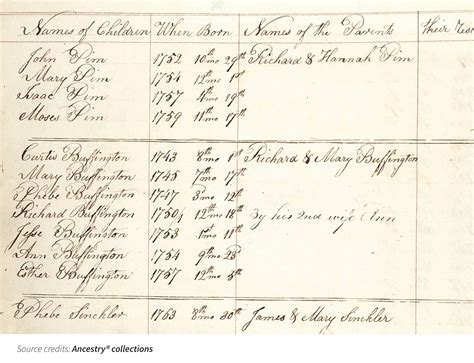 Names of Children When Born Names of the Parents their
John Pim 1752 10mo 29th Richard & Hannah Pim
Mary Pim 1754 12mo 1st
Isaac Pim 1757 4mo 19th
Moses Pim 1759 11mo 17th
Curtis Buffington 1743 8mo 1st Richard & Mary Buffington
Mary Buffington 1745 7mo 17th
Phebe Buffington 1747 3mo 12th
Richard Buffington 1750 12mo 18th By his 2nd wife Ann
Jesse Buffington 1753 1mo 11th
Ann Buffington 1754 9mo 23d
Esther Buffington 1757 12mo 5th
Phebe Sinckler 1763 8mo 30th James & Mary Sinckler
Source credits: Ancestry® collections